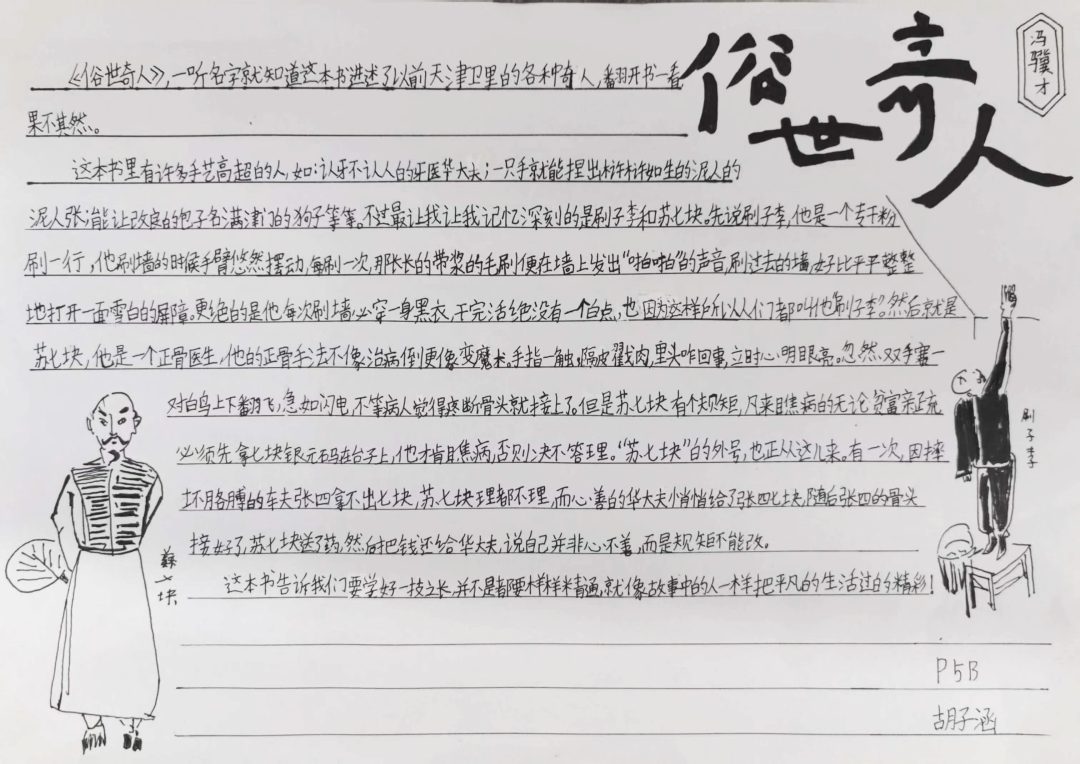 俗世奇人
冯骥才
《俗世奇人》,一听名字就知道这本书讲述了以前天津卫里的各种奇人,翻开书一看
果不其然。
这本书里有许多手艺高超的人,如:认牙不认人的牙医华大夫;一只手就能捏出栩栩如生的泥人的
泥人张;能让改良的包子名满津门的狗子等等。不过最让我让我记忆深刻的是刷子李和苏七块。先说刷子李,他是一个专干粉
刷一行,他刷墙的时候手臂悠然摆动,每刷一次,那长长的带浆的毛刷便在墙上发出“啪啪”的声音,刷过去的墙,好比平平整整
地打开一面雪白的屏障。更绝的是他每次刷墙必穿一身黑衣,干完活绝没有一个白点,也因为这样所以人们都叫他“刷子李”。然后就是
苏七块,他是一个正骨医生,他的正骨手法不像治病倒更像变魔术,手指一触,隔皮戳肉,里头咋回事,立时心明眼亮。忽然双手赛一
对白鸟上下翻飞,急如闪电,不等病人觉得疼断骨头就接上了。但是苏七块有个规矩,凡来瞧病的无论贫富亲疏
必须先拿七块银元码在台子上,他才肯瞧病,否则决不答理。“苏七块”的外号,也正从这儿来。有一次,因摔
坏胳膊的车夫张四拿不出七块,苏七块理都不理,而心善的华大夫悄悄给了张四七块,随后张四的骨头
接好了,苏七块送了药,然后把钱还给华大夫,说自己并非心不善,而是规矩不能改。
这本书告诉我们要学好一技之长,并不是都要样样精通,就像故事中的人一样把平凡的生活过的精彩!
蘇七块
刷子李
P5B
胡子涵